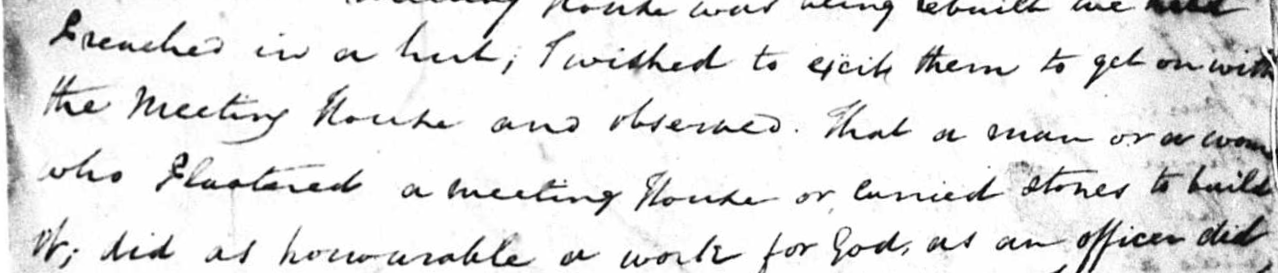 Meeting House was being rebuilt we held
Preached in a hut; I wished to excite them to get on with
the Meeting House and observed. That a man or a wom
who Plastered a meeting House or carried stones to build
it; did as honourable a work for God, as an officer did